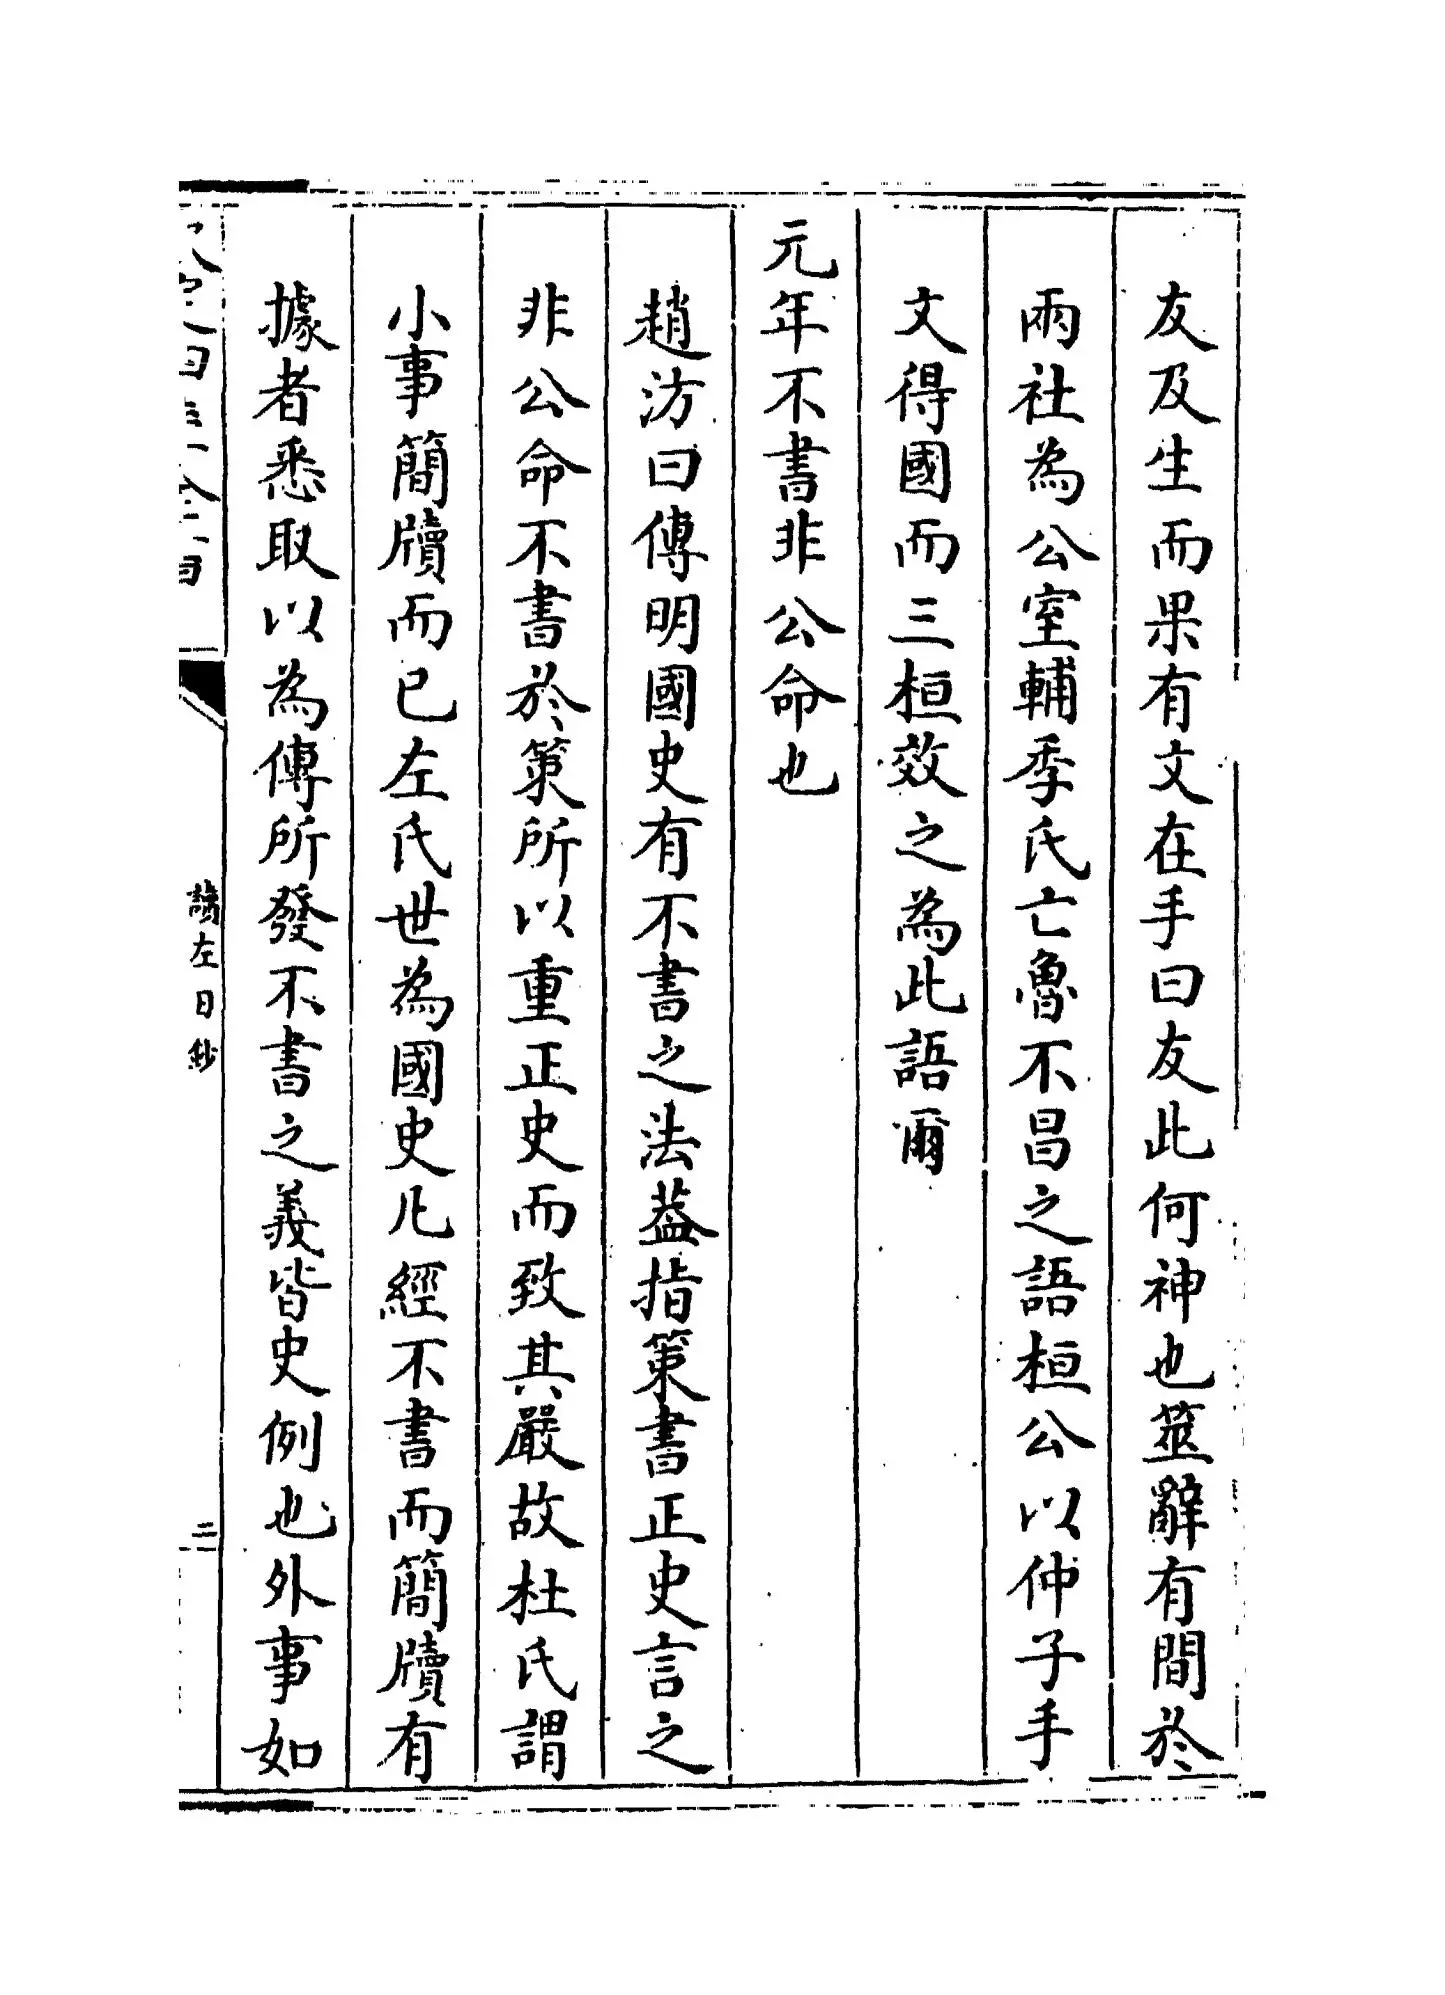 友及生而果有文在手曰友此何神也筮辭有間於
兩社為公室輔季氏亡魯不昌之語桓公以仲子手
文得國而三桓效之為此語爾
元年不書非公命也
趙汸曰傳明國史有不書之法葢指策書正史言之
非公命不書於策所以重正史而致其嚴故杜氏謂
小事簡牘而已左氏世為國史凡經不書而簡牘有
據者悉取以為傳所發不書之義皆史例也外事如
讀左日鈔
二